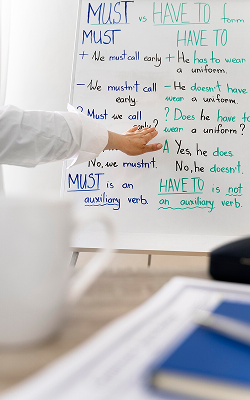 MUST vs HAVE TO form
MUST HAVE TO
+ We must call early + He has to wear
a uniform.
- We mustn't call - He doesn't have
early. wear a uniform.
? Must we call ? Does he have to
early? wear a uniform?
A Yes, he does.
No, we mustn't. No, he doesn't.
MUST is an HAVE TO is not
auxiliary verb. an auxiliary verb.